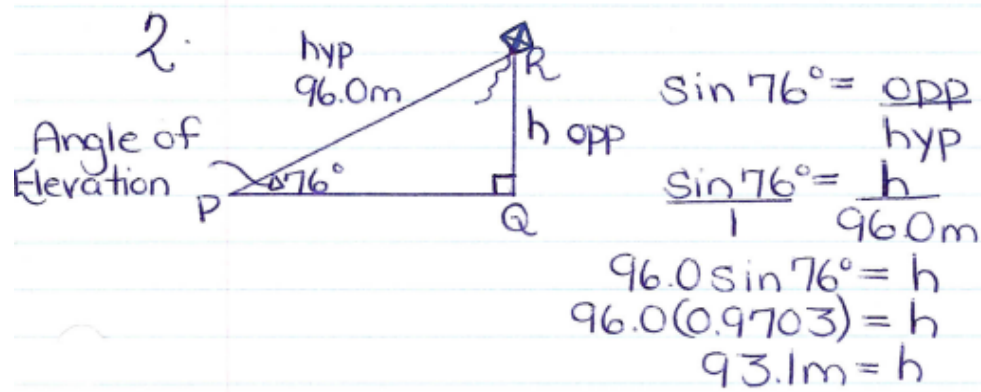 2.
hyp
96.0m
Angle of
Elevation
76°
P
Q
R
h opp
sin 76° = opp
hyp
sin 76° = h
1 96.0m
96.0 sin 76° = h
96.0(0.9703) = h
93.1m = h